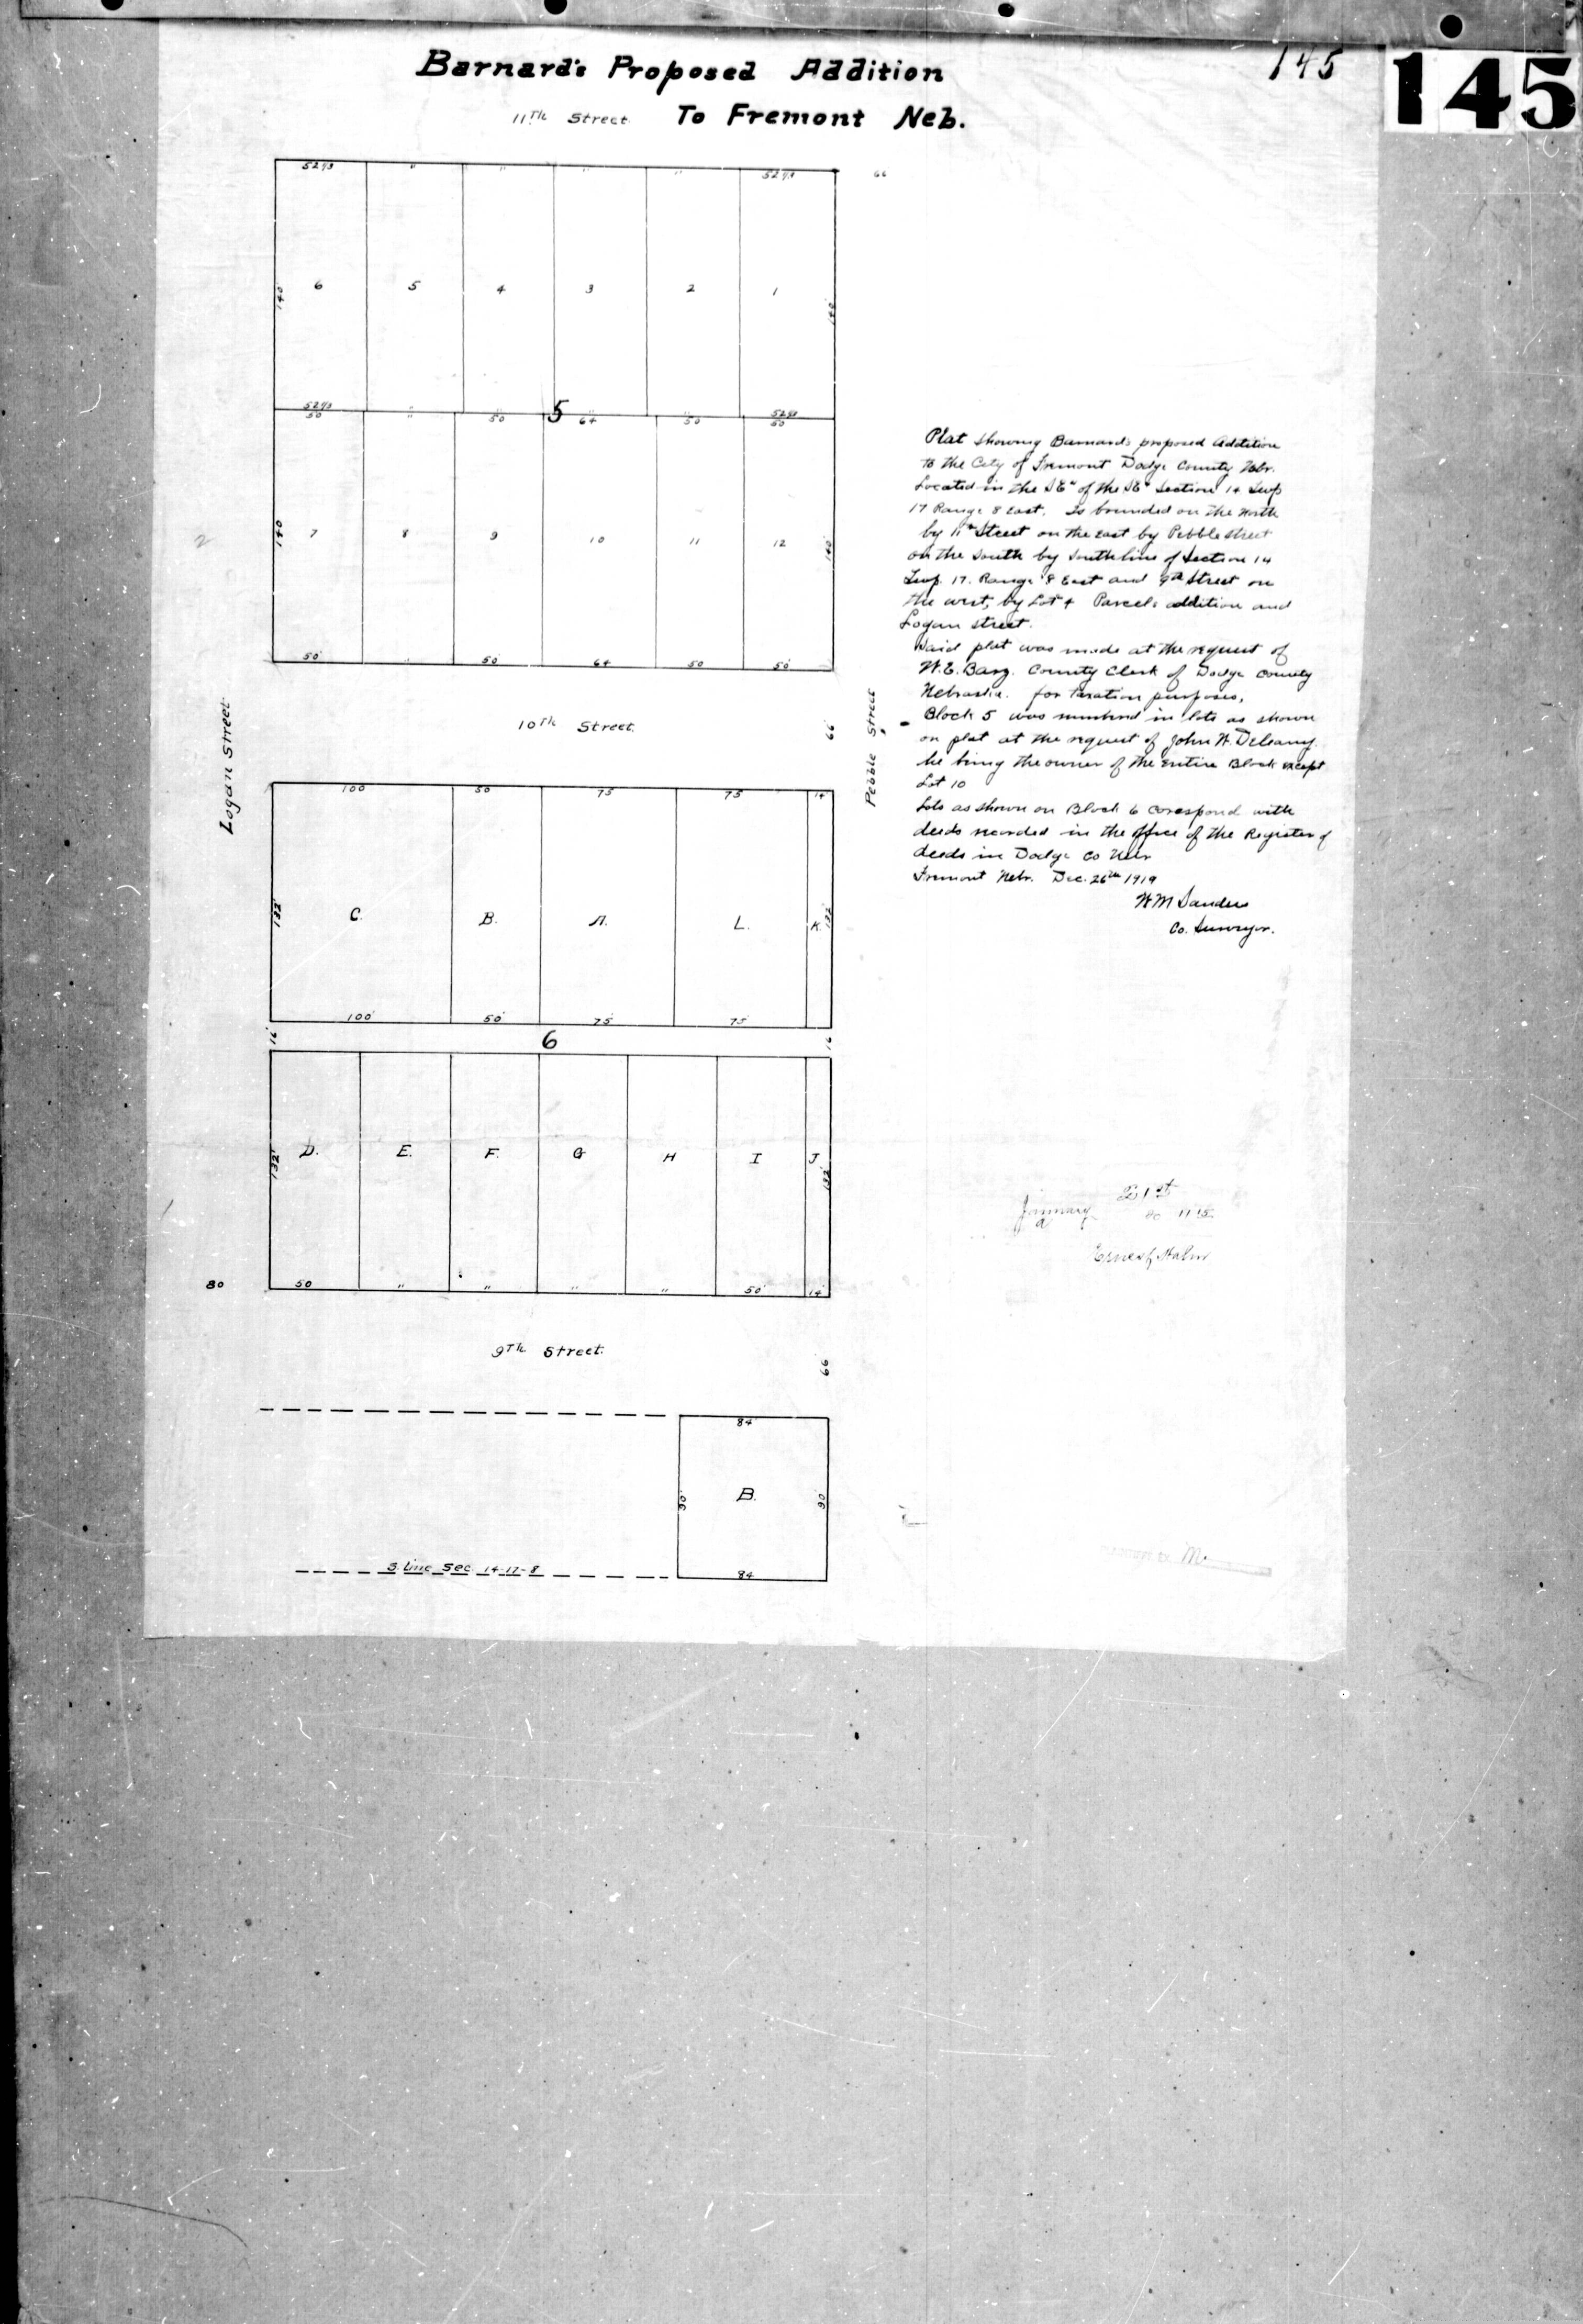 145
145
Barnard's Proposed Addition
11Th Street. To Fremont Neb.
52⅔ " " " " 52⅔ 66
140 6 5 4 3 2 1 140
52⅔ " 52⅔
50 " 50 5 64 50 50
140 7 8 9 10 11 12 140
2
50' 50 64 50 50'
Logan Street
10Th Street.
66
Pebble Street
100 50 75 75 14
132' C. B. A. L. K. 132'
100' 50' 75' 75'
16' 6 16
132' D. E. F. G H I J 132'
80 50 " " " " 50' 14'
9Th Street.
66
84
90' B. 90
S. Line Sec. 14-17-8
84
Plat showing Barnard's proposed Addition
to the City of Fremont Dodge County Nebr.
Located in the SE" of the SE" Section 14 Twp
17 Range 8 East. Is bounded on the North
by 11th Street on the east by Pebble street
on the south by south line of Section 14
Twp. 17. Range 8 East and 9th Street on
the west, by Lot 4 Parcel's addition and
Logan street.
Said plat was made at the request of
W.E. County Clerk of Dodge County
Nebraska. for taxation purposes,
Block 5 was numberd in lots as shown
on plat at the request of John W. Delaney.
he being the owner of the entire Block except
Lot 10
Lots as shown on Block 6 corespond with
deeds recorded in the office of the Register of
deeds in Dodge Co Nebr
Fremont Nebr. Dec. 26th 1919
W M Sanders
Co. Surveyor.
January 21st
a 20 11 15
Ernest Hahn